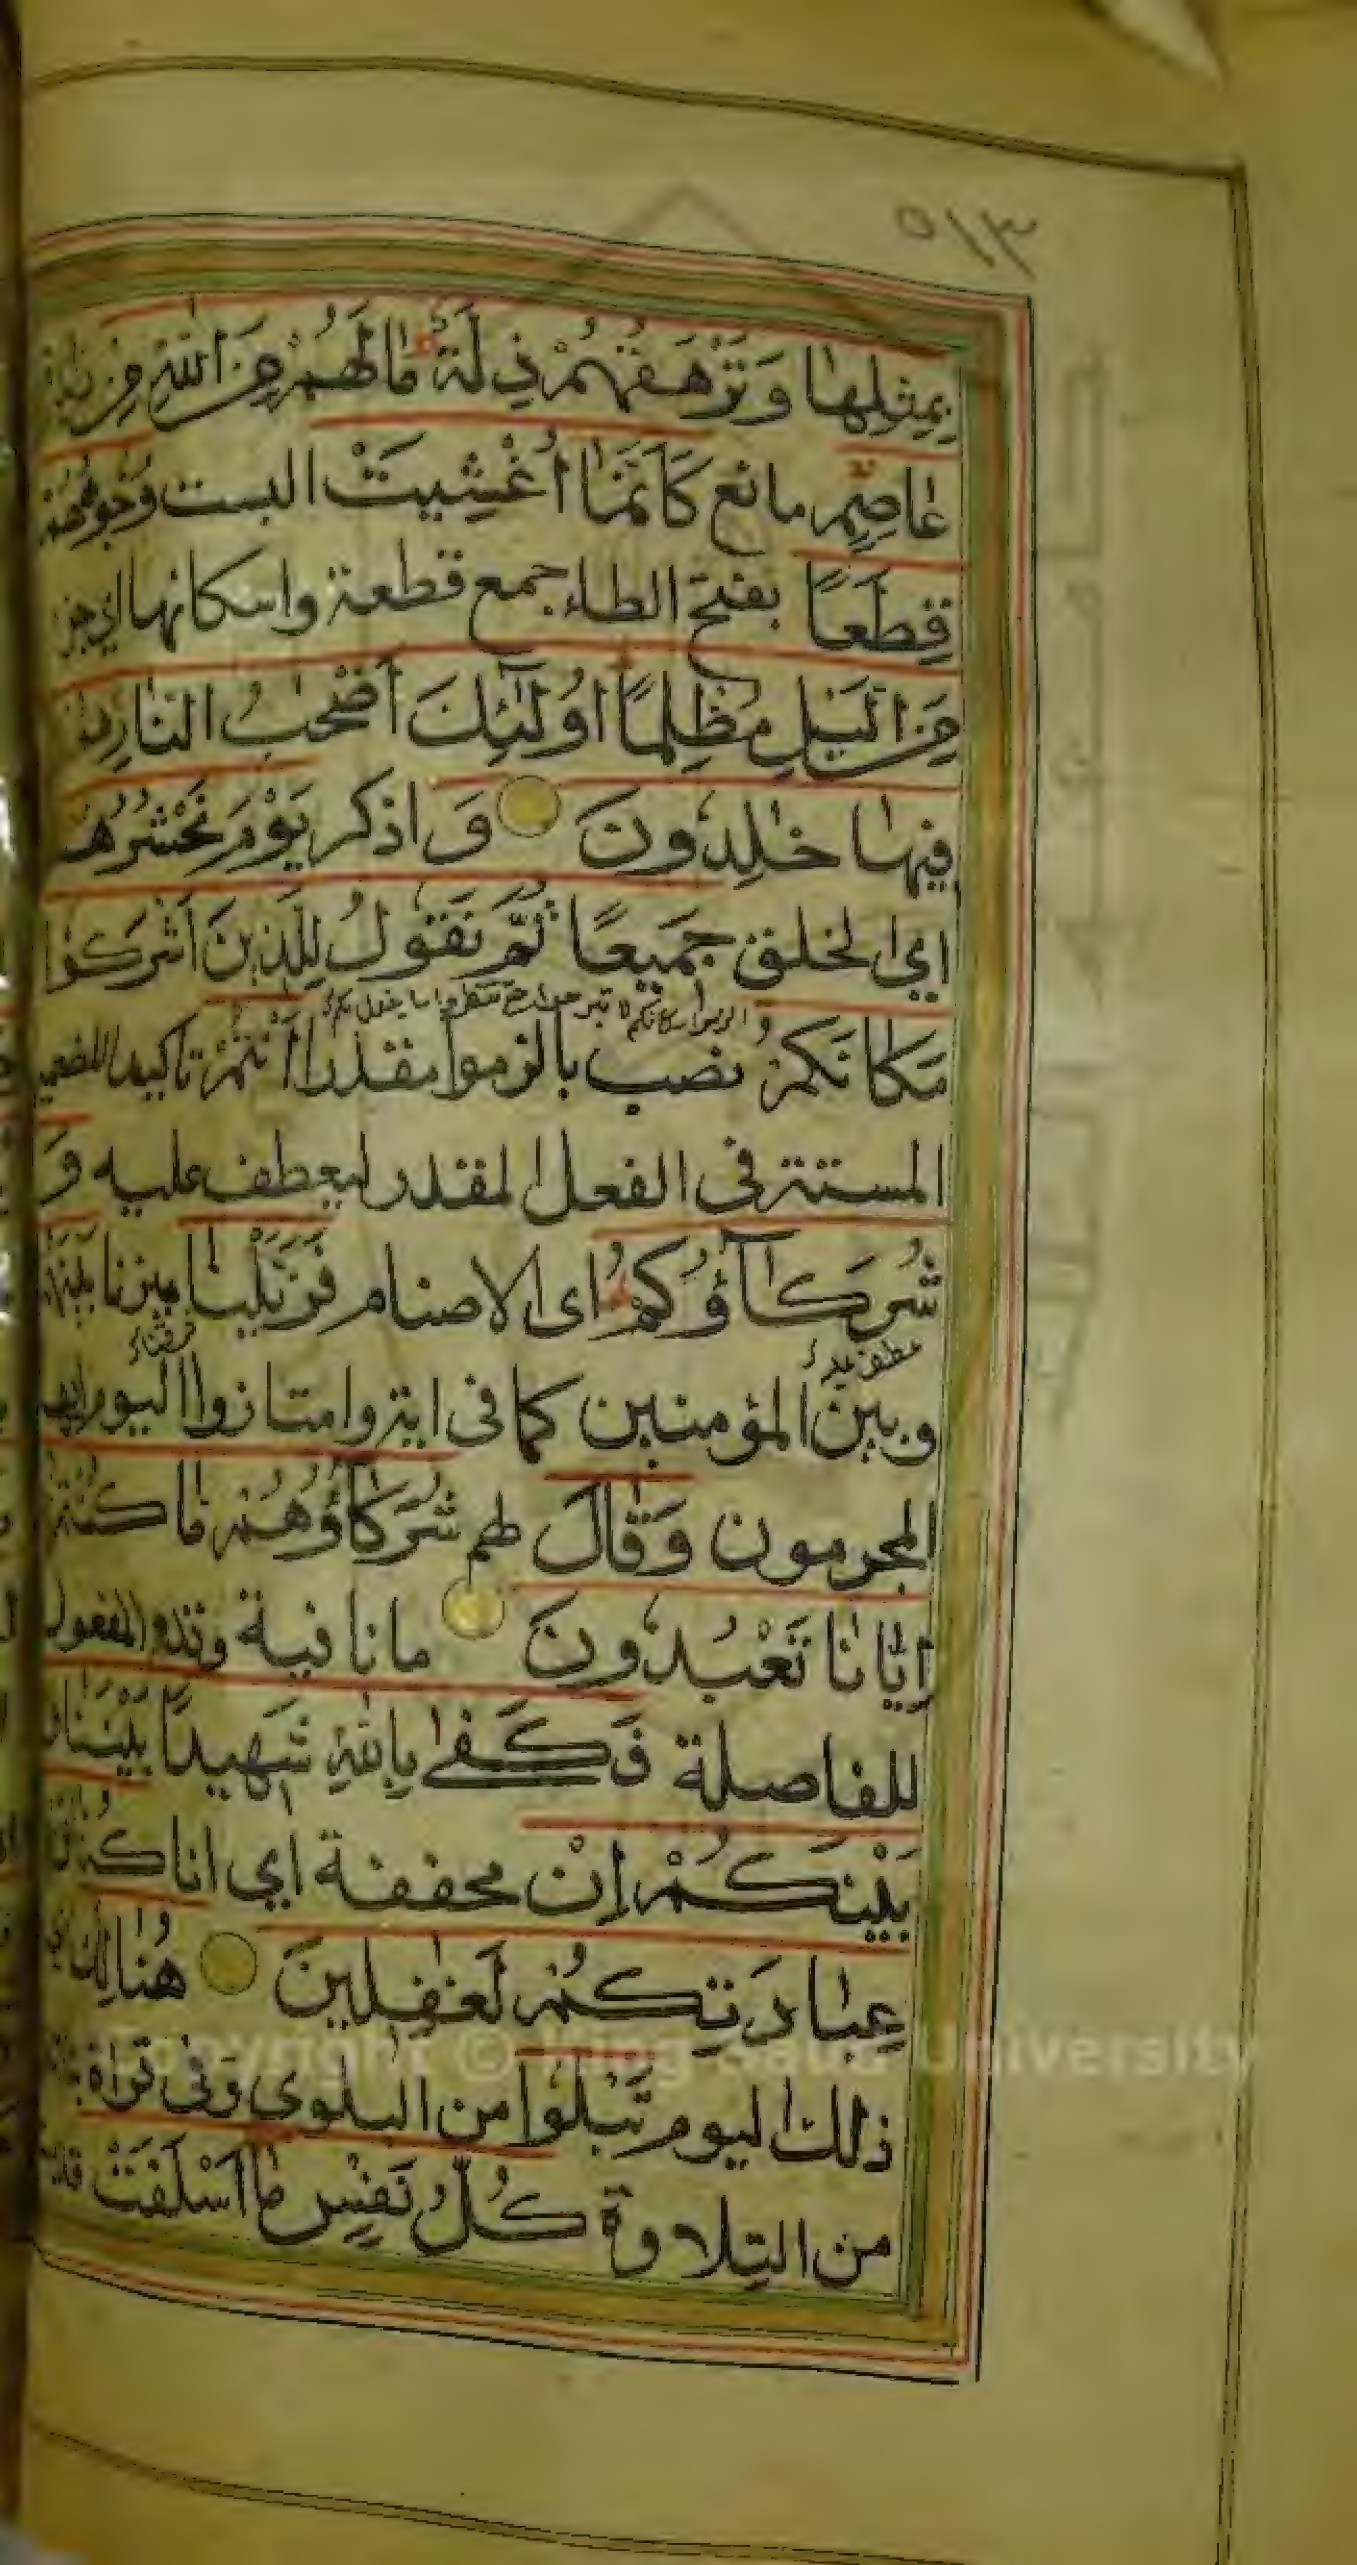 ٥١٣
بِمِثْلِهَا وَتَرْهَقُهُمْ ذِلَّةٌ مَا لَهُمْ مِنَ اللّٰهِ مِنْ
عَاصِمٍ مانع كَأَنَّمَا أُغْشِيَتْ البست وُجُوهُهُمْ
قِطَعًا بفتح الطاء جمع قطعة واسكانها اي
مِنَ الَّيْلِ مُظْلِمًا أُولٰٓئِكَ أَصْحٰبُ النَّارِ
فِيهَا خٰلِدُونَ وَ اذكر يَوْمَ نَحْشُرُهُمْ
اي الخلق جَمِيعًا ثُمَّ نَقُولُ لِلَّذِينَ أَشْرَكُوا
مَكَانَكُمْ نصب بالزموا مقدرا أَنْتُمْ تاكيد للضمير
المستتر فى الفعل المقدر ليعطف عليه وَ
شُرَكَآؤُكُمْ اى الاصنام فَزَيَّلْنَا ميزنا بَيْنَهُمْ
عطف
وبين المؤمنين كما فى اية وامتازوا اليوم ايها
المجرمون وَقَالَ لهم شُرَكَآؤُهُمْ مَا كُنْتُمْ
إِيَّانَا تَعْبُدُونَ ما نافية وقدم المفعول
للفاصلة فَكَفٰى بِاللّٰهِ شَهِيدًا بَيْنَنَا وَ
بَيْنَكُمْ إِنْ مخففة اي انا كُنَّا
عَنْ عِبَادَتِكُمْ لَغٰفِلِينَ هُنَالِكَ اي
Copyright © King Saud University
ذلك اليوم تَبْلُوا من البلوى وفى قراة
من التلاوة كُلُّ نَفْسٍ مَا أَسْلَفَتْ